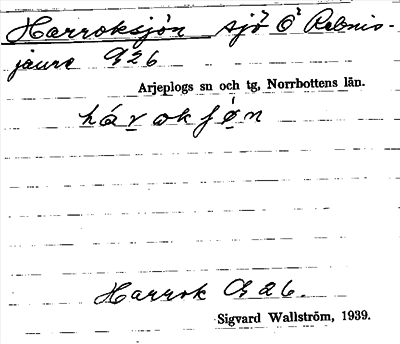 Harroksjön sjö Ö Rebnis-
jaure G26
Arjeplogs sn och tg, Norrbottens län.
Harrok G 26.
Sigvard Wallström, 1939.